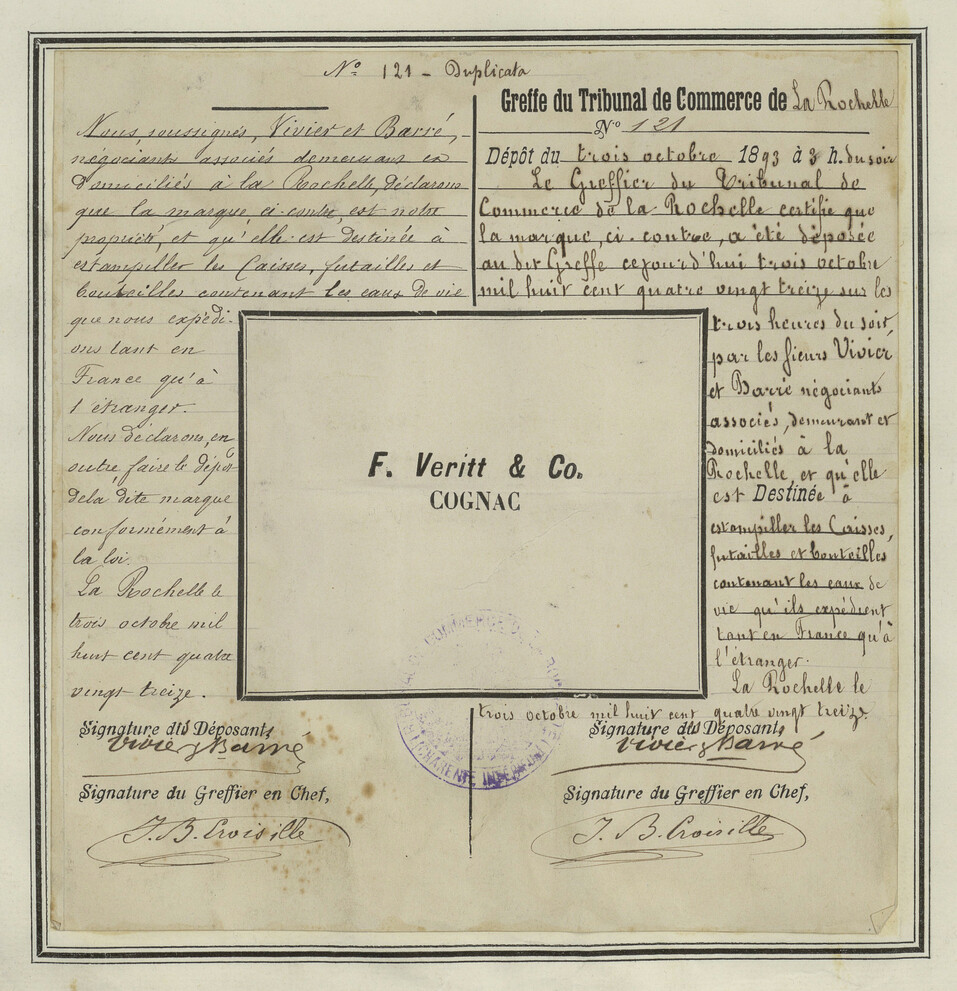 Nº 121 - Duplicata
Nous, soussignés, Vivier et Barré,
négociants associés demeurant et
domiciliés à la Rochelle, déclarons
que la marque, ci-contre, est notre
propriété, et qu'elle est destinée à
estampiller les Caisses, futailles et
bouteilles contenant les eaux de vie
que nous expédi-
ons tant en
France qu'à
l'étranger.
Nous déclarons, en
outre, faire le dépôt
de la dite marque
conformément à
la loi.
La Rochelle le
trois octobre mil
huit cent quatre
vingt treize.
Signature des Déposants
Vivier & Barré
Signature du Greffier en Chef,
J. B. Croisille
Greffe du Tribunal de Commerce de La Rochelle
Nº 121
Dépôt du trois octobre 1893 à 3 h. du soir
Le Greffier du Tribunal de
Commerce de la Rochelle certifie que
la marque, ci-contre, a été déposée
au dit Greffe cejourd'hui trois octobre
mil huit cent quatre vingt treize sur les
trois heures du soir,
par les sieurs Vivier
et Barré négociants
associés, demeurant et
domiciliés à la
Rochelle, et qu'elle
est Destinée à
estampiller les Caisses,
futailles et bouteilles
contenant les eaux de
vie qu'ils expédient
tant en France qu'à
l'étranger.
La Rochelle le
trois octobre mil huit cent quatre vingt treize.
Signature des Déposants
Vivier & Barré
Signature du Greffier en Chef,
J. B. Croisille
F. Veritt & Co.
COGNAC
COMMERCE DE LA
CHARENTE INF